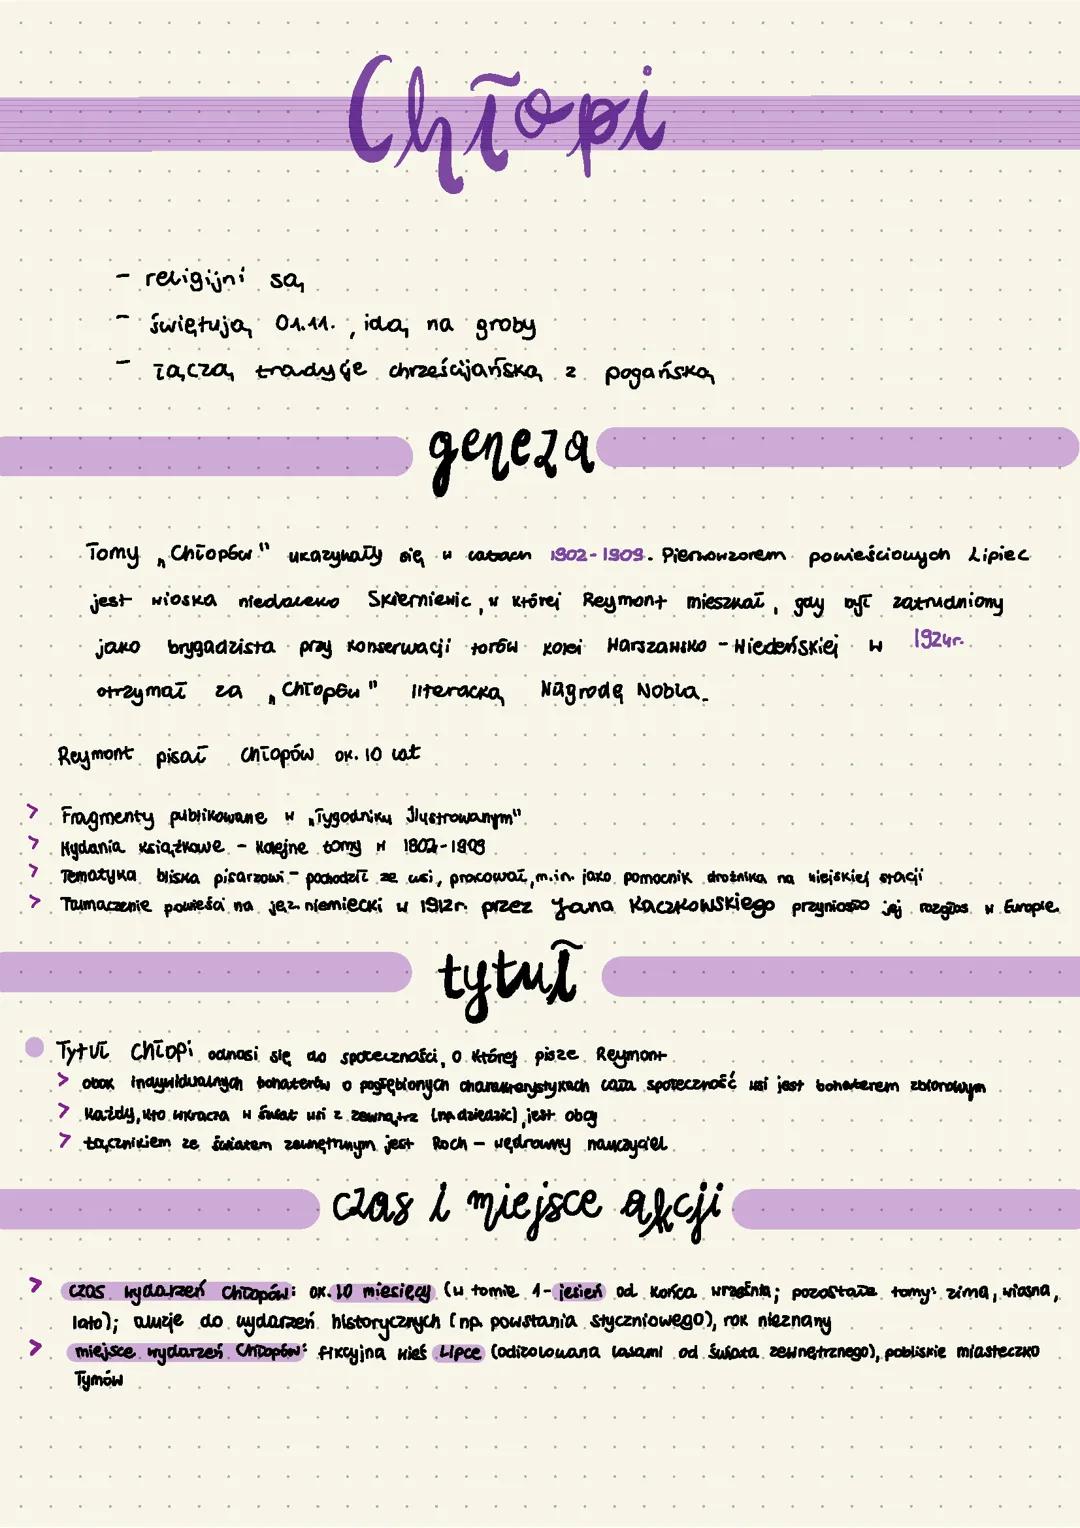 Chłopi
- religijni są
- świętują 01.11., idą na groby
- łączą tradycje chrześcijańską z pogańską
geneza
Tomy „Chłopów" ukazywały się w latach 1902-1909. Pierwowzorem powieściowych Lipiec
jest wioska niedaleko Skierniewic, w której Reymont mieszkał, gdy był zatrudniony
jako brygadzista przy konserwacji torów kolei Warszawsko-Wiedeńskiej w 1924r.
otrzymał za „Chłopów" literacką Nagrodę Nobla.
Reymont pisał Chłopów ok. 10 lat
> Fragmenty publikowane w „Tygodniku Ilustrowanym"
> Wydania książkowe - kolejne tomy w 1902-1909
> Tematyka bliska pisarzowi - pochodził ze wsi, pracował, m.in. jako pomocnik drożnika na wiejskiej stacji
> Tłumaczenie powieści na jęz. niemiecki w 1912r. przez Jana Kaczkowskiego przyniosło jej rozgłos w Europie
tytuł
Tytuł Chłopi odnosi się do społeczności, o której pisze Reymont
> obok indywidualnych bohaterów o pogłębionych charakterystykach cała społeczność wsi jest bohaterem zbiorowym
> każdy, kto wkracza w świat wsi z zewnątrz (np. dziedzic), jest obcy
> łącznikiem ze światem zewnętrznym jest Roch - wędrowny nauczyciel
czas i miejsce akcji
> czas wydarzeń Chłopów: ok. 10 miesięcy (w tomie 1- jesień od końca września; pozostałe tomy: zima, wiosna,
lato); aluzje do wydarzeń historycznych (np. powstania styczniowego), rok nieznany
> miejsce wydarzeń Chłopów: fikcyjna wieś Lipce (odizolowana lasami od świata zewnętrznego), pobliskie miasteczko
Tymów